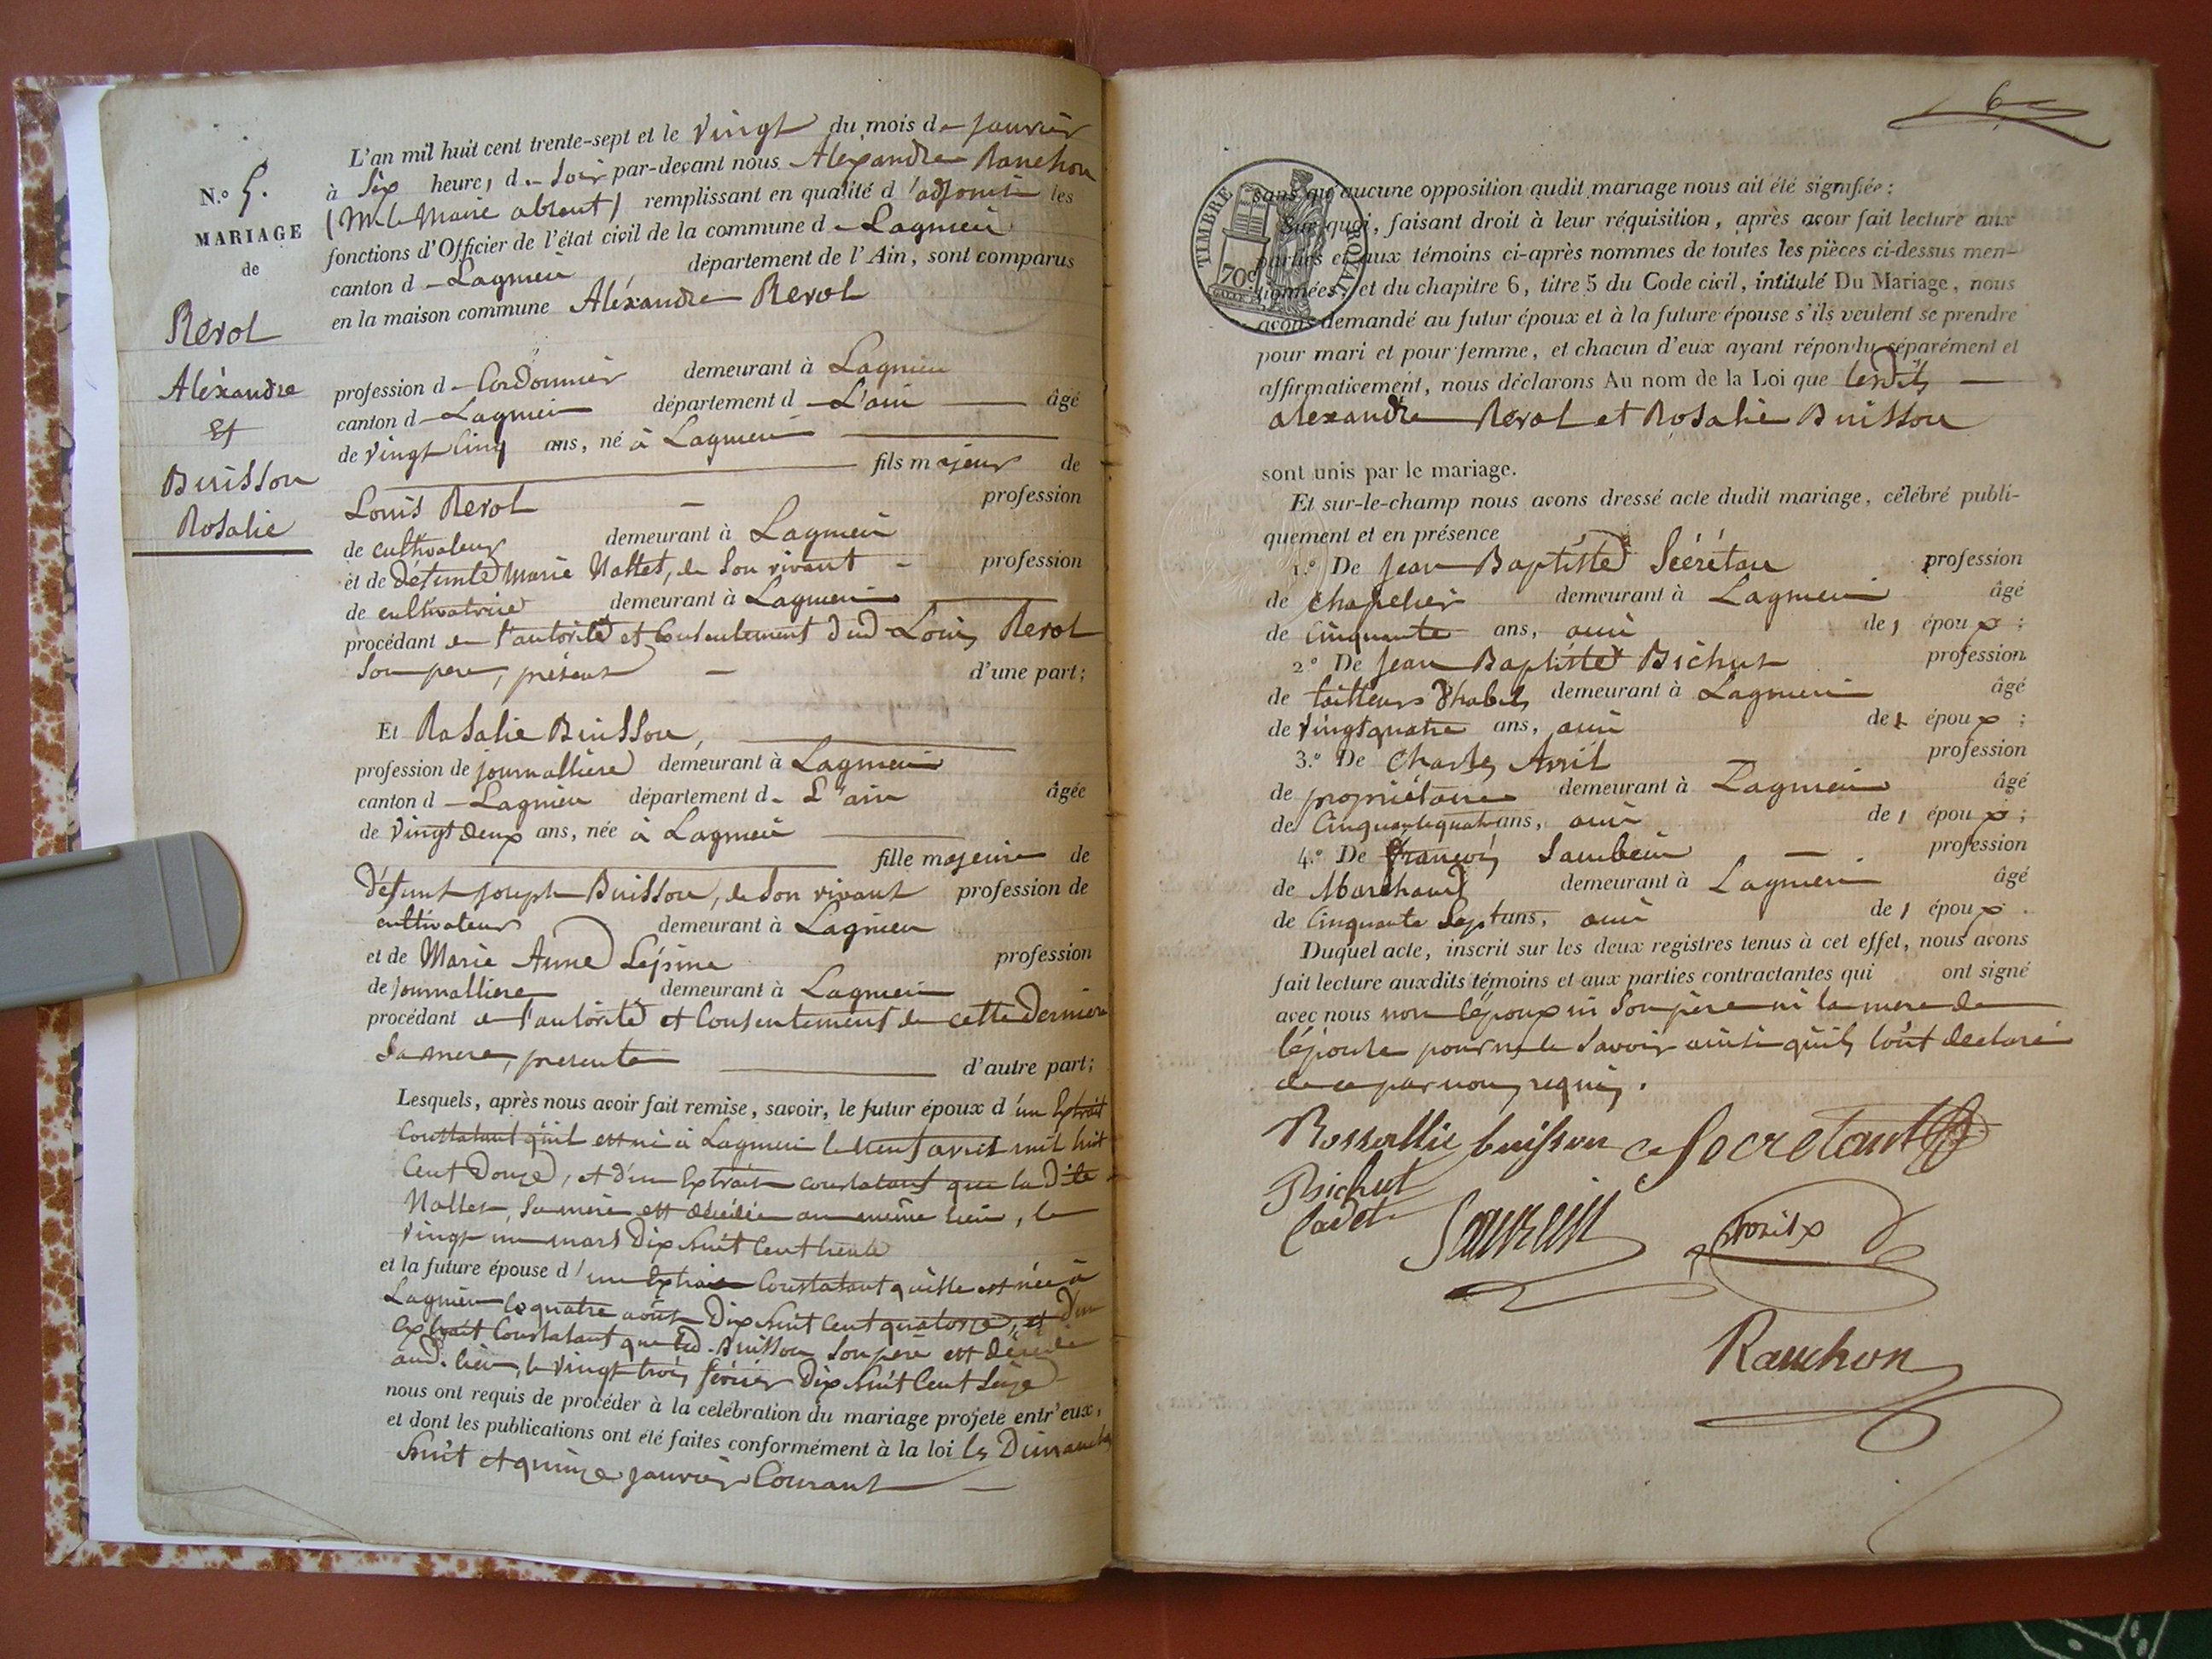 N.o 5.
MARIAGE
de
Revol
Aléxandre
Et
Buisson
Rosalie
L'an mil huit cent trente-sept et le vingt du mois de janvier
à Six heures du Soir par-devant nous Aléxandre Ranchon
(Mr le Maire absent) remplissant en qualité d'adjoint les
fonctions d'Officier de l'état civil de la commune de Lagnieu
canton de Lagnieu département de l'Ain, sont comparus
en la maison commune Aléxandre Revol
profession de Cordonnier demeurant à Lagnieu
canton de Lagnieu département de L'ain âgé
de vingt cinq ans, né à Lagnieu
fils majeur de
Louis Revol profession
de cultivateur demeurant à Lagnieu
et de défunte Marie Nallet, de son vivant profession
de cultivatrice demeurant à Lagnieu
procédant de l'autorité et Consentement dud. Louis Revol
Son pere, présent d'une part;
Et Rosalie Buisson,
profession de journalliere demeurant à Lagnieu
canton de Lagnieu département de L'ain âgée
de vingt deux ans, née à Lagnieu
fille majeure de
défunt joseph Buisson, de son vivant profession de
cultivateur demeurant à Lagnieu
et de Marie Anne Lépine profession
de journalliere demeurant à Lagnieu
procédant de l'autorité et Consentement de cette derniere
Sa mere, presente d'autre part;
Lesquels, après nous avoir fait remise, savoir, le futur époux d'un Extrait
Constatant qu'il est né à Lagnieu le neuf avril mil huit
Cent Douze, et d'un Extrait constatant que la dite
Nallet, Sa mère est décédée au même lieu, le
vingt un mars Dix huit Cent trente
et la future épouse d'un Extrait Constatant qu'elle est née à
Lagnieu le quatre août Dix huit Cent quatorze, et d'un
Extrait Constatant que led. Buisson Son père est décédé
aud. lieu, le vingt trois février Dix huit Cent Seize
nous ont requis de procéder à la célébration du mariage projeté entr'eux,
et dont les publications ont été faites conformément à la loi les Dimanches
huit et quinze janvier Courant
6
TIMBRE ROYAL
70c
sans qu'aucune opposition audit mariage nous ait été signifiée;
Sur quoi, faisant droit à leur réquisition, après avoir fait lecture aux
parties et aux témoins ci-après nommés de toutes les pièces ci-dessus men-
tionnées, et du chapitre 6, titre 5 du Code civil, intitulé Du Mariage, nous
avons demandé au futur époux et à la future épouse s'ils veulent se prendre
pour mari et pour femme, et chacun d'eux ayant répondu séparément et
affirmativement, nous déclarons Au nom de la Loi que lesdits
alexandre Revol et Rosalie Buisson
sont unis par le mariage.
Et sur-le-champ nous avons dressé acte dudit mariage, célébré publi-
quement et en présence
1.o De jean Baptiste Sécrétan profession
de chapelier demeurant à Lagnieu âgé
de Cinquante ans, ami des époux;
2.o De jean Baptiste Bichut profession
de tailleurs d'habits demeurant à Lagnieu âgé
de vingt quatre ans, ami des époux;
3.o De Charles Avril profession
de propriétaire demeurant à Lagnieu âgé
de Cinquante quatre ans, ami des époux;
4.o De françois profession
de Marchand demeurant à Lagnieu âgé
de Cinquante Sept ans, ami des époux.
Duquel acte, inscrit sur les deux registres tenus à cet effet, nous avons
fait lecture auxdits témoins et aux parties contractantes qui ont signé
avec nous non l'époux ni Son père ni la mere de
l'épouse pour ne le savoir ainsi qu'ils l'ont declaré
de ce par nous requis.
Rossallie buisson Secretant
Bichut
Cadet
Avril
Ranchon